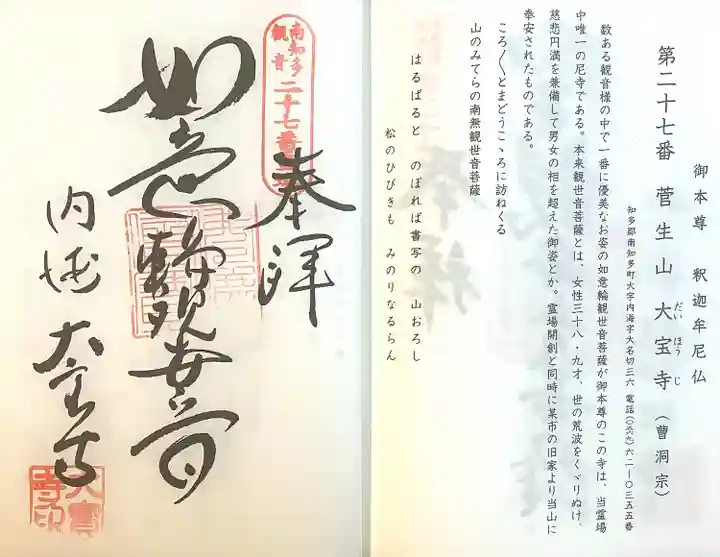 御本尊　釈迦牟尼仏
第二十七番　菅生山　大宝寺（曹洞宗）
だいほうじ
知多郡南知多町大字内海字大名切三六　電話（〇五六九）六二ー〇三五五番
数ある観音様の中で一番に優美なお姿の如意輪観世音菩薩が御本尊のこの寺は、当霊場
中唯一の尼寺である。本来観世音菩薩とは、女性三十八・九才、世の荒波をくゞりぬけ、
慈悲円満を兼備して男女の相を超えた御姿とか。霊場開創と同時に某市の旧家より当山に
奉安されたものである。
ころ〱とまどうこゝろに訪ねくる
山のみてらの南無観世音菩薩
はるばると　のぼれば書写の　山おろし
松のひびきも　みのりなるらん
南知多
観音
二十七番
奉拝
如意輪観世音
内海　大宝寺
大寳
寺印